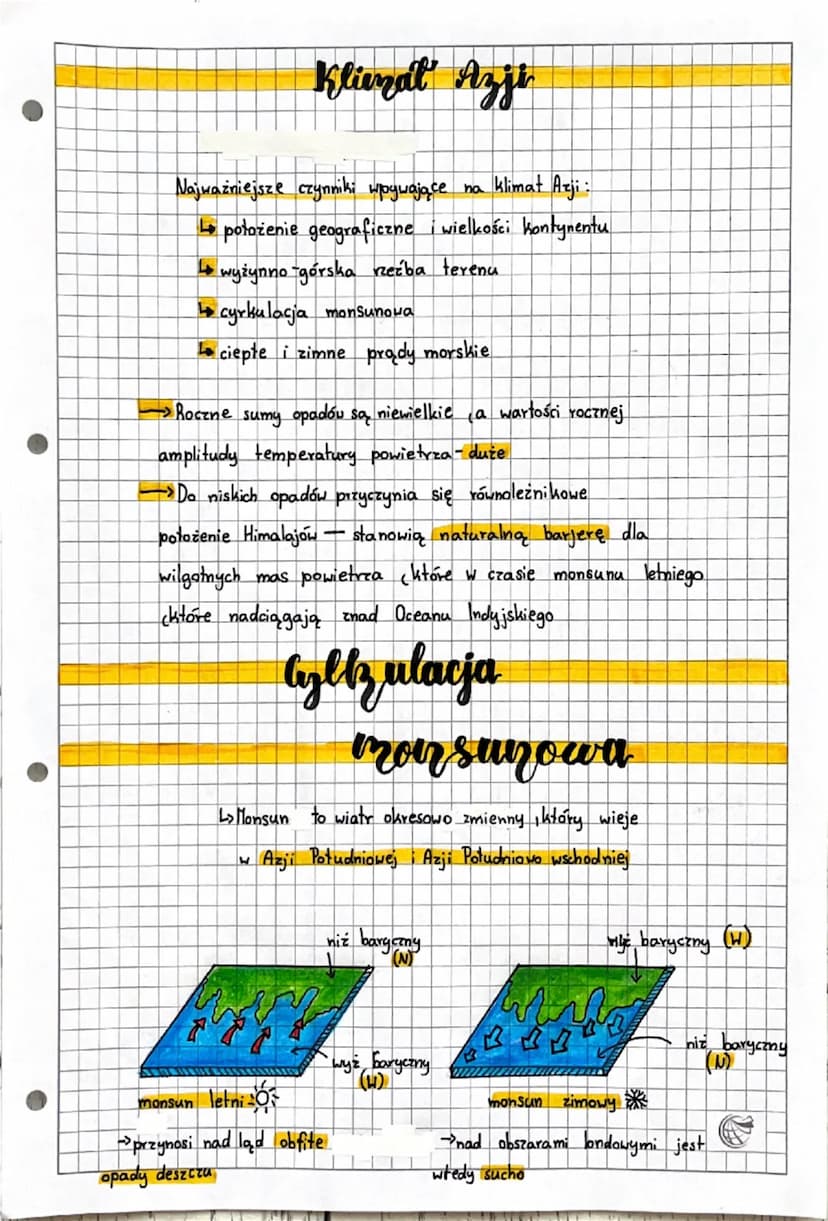 Klimat Azji
Najważniejsze czynniki wpywające na klimat Azji:
↳ położenie geograficzne i wielkości kontynentu
↳ wyżynno-górska rzeźba terenu
↳ cyrkulacja monsunowa
↳ ciepłe i zimne prądy morskie
→ Roczne sumy opadów są niewielkie , a wartości rocznej
amplitudy temperatury powietrza - duże
→ Do niskich opadów przyczynia się równoleżnikowe
położenie Himalajów — stanowią naturalną barjerę dla
wilgotnych mas powietrza , które w czasie monsunu letniego
, które nadciągają znad Oceanu Indyjskiego
Cyrkulacja
monsunowa
↳ Monsun to wiatr okresowo zmienny , który wieje
w Azji Południowej i Azji Południowo wschodniej
niż baryczny
(N)
wyż baryczny
(W)
monsun letni
→ przynosi nad ląd obfite
opady deszczu
wyż baryczny (W)
niż baryczny
(N)
monsun zimowy
→ nad obszarami londowymi jest
wtedy sucho